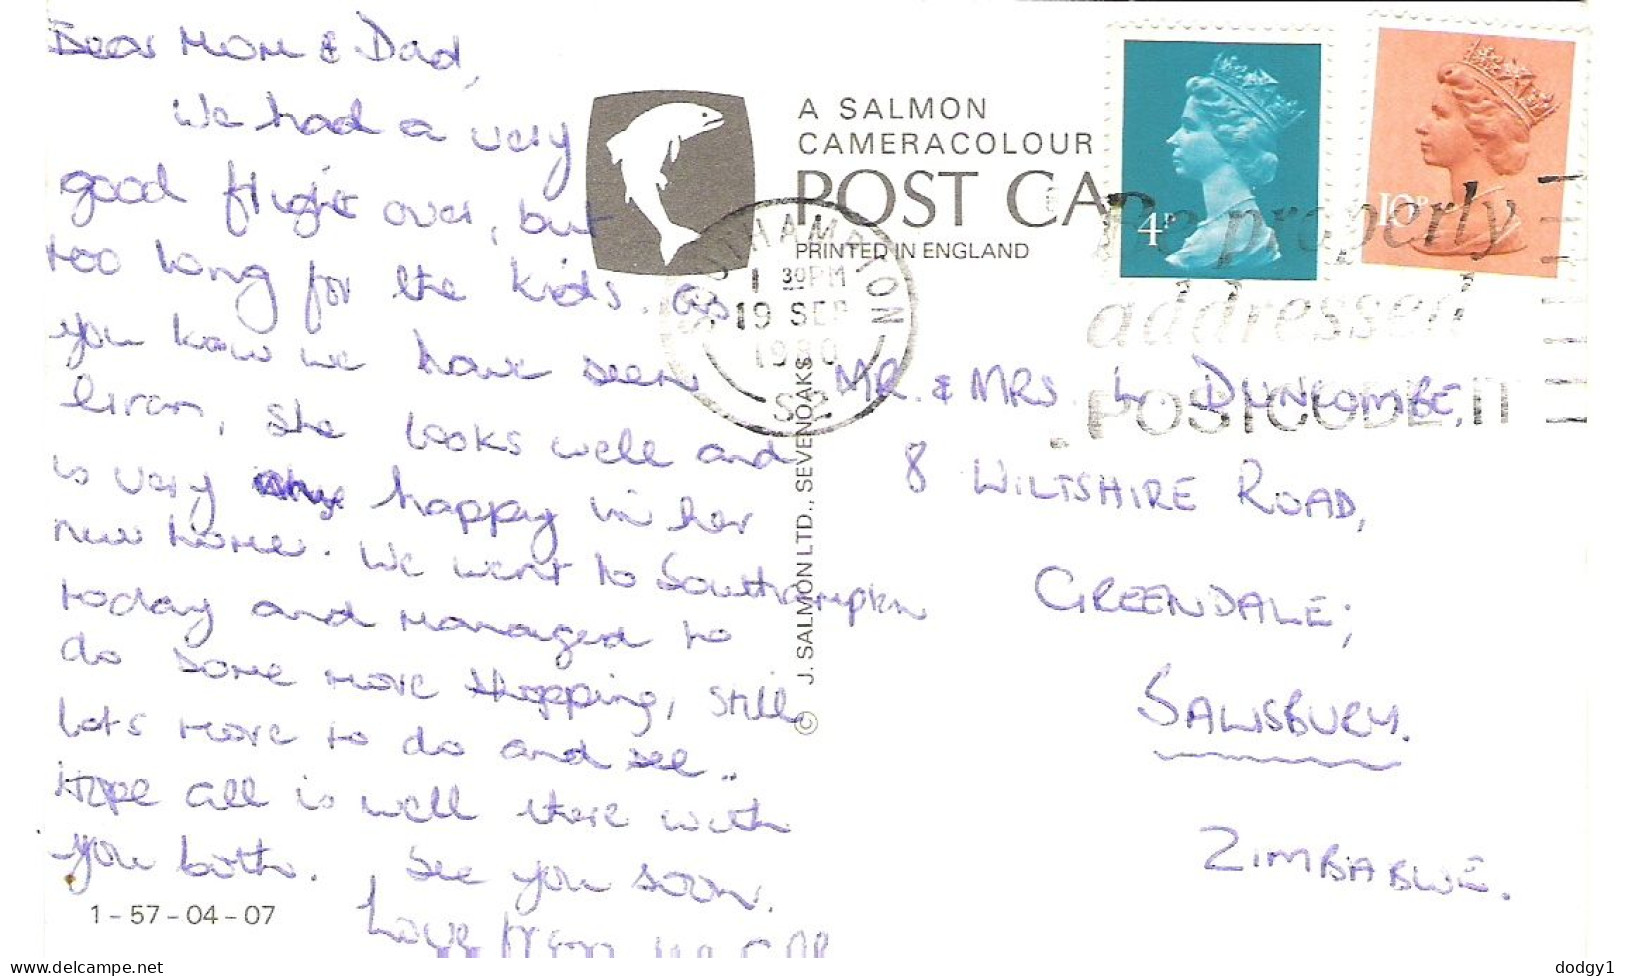 Dear Mom & Dad,
We had a very
good flight over, but
too long for the kids. As
you know we have seen
Gran, she looks well and
is very happy in her
new home. We went to Southampton
today and managed to
do some more shopping, still
lots more to do and see..
Hope all is well there with
you both. See you soon.
Love from
1 - 57 - 04 - 07
A SALMON
CAMERACOLOUR
POST CA
PRINTED IN ENGLAND
© J. SALMON LTD., SEVENOAKS
4P
10P
SOUTHAMPTON
1 30PM
19 SEP
1980
Be properly
addressed
POSTCODE IT
MR. & MRS. L. DUNCOMBE,
8 WILTSHIRE ROAD,
GREENDALE,
SALISBURY.
ZIMBABWE.
https://www.delcampe.net
dodgy1